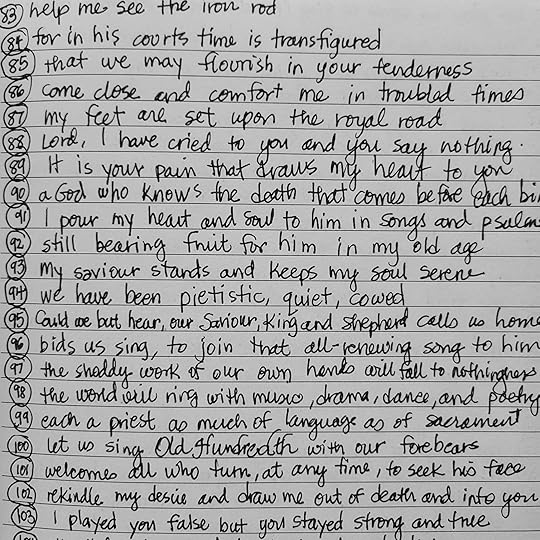 83 help me see the iron rod
84 for in his courts time is transfigured
85 that we may flourish in your tenderness
86 come close and comfort me in troubled times
87 my feet are set upon the royal road
88 Lord, I have cried to you and you say nothing.
89 It is your pain that draws my heart to you
90 a God who knows the death that comes before each bi
91 I pour my heart and soul to him in songs and psalms
92 still bearing fruit for him in my old age
93 my saviour stands and keeps my soul serene
94 we have been pietistic, quiet, cowed
95 Could we but hear, our Saviour, King and shepherd calls us home
96 bids us sing, to join that all-renewing song to him
97 the shoddy work of our own hands will fall to nothingness
98 the world will ring with music, drama, dance, and poetry
99 each a priest as much of language as of sacrament
100 let us sing Old Hundredth with our forebears
101 welcomes all who turn, at any time, to seek his face
102 rekindle my desire and draw me out of death and into you
103 I played you false but you stayed strong and true